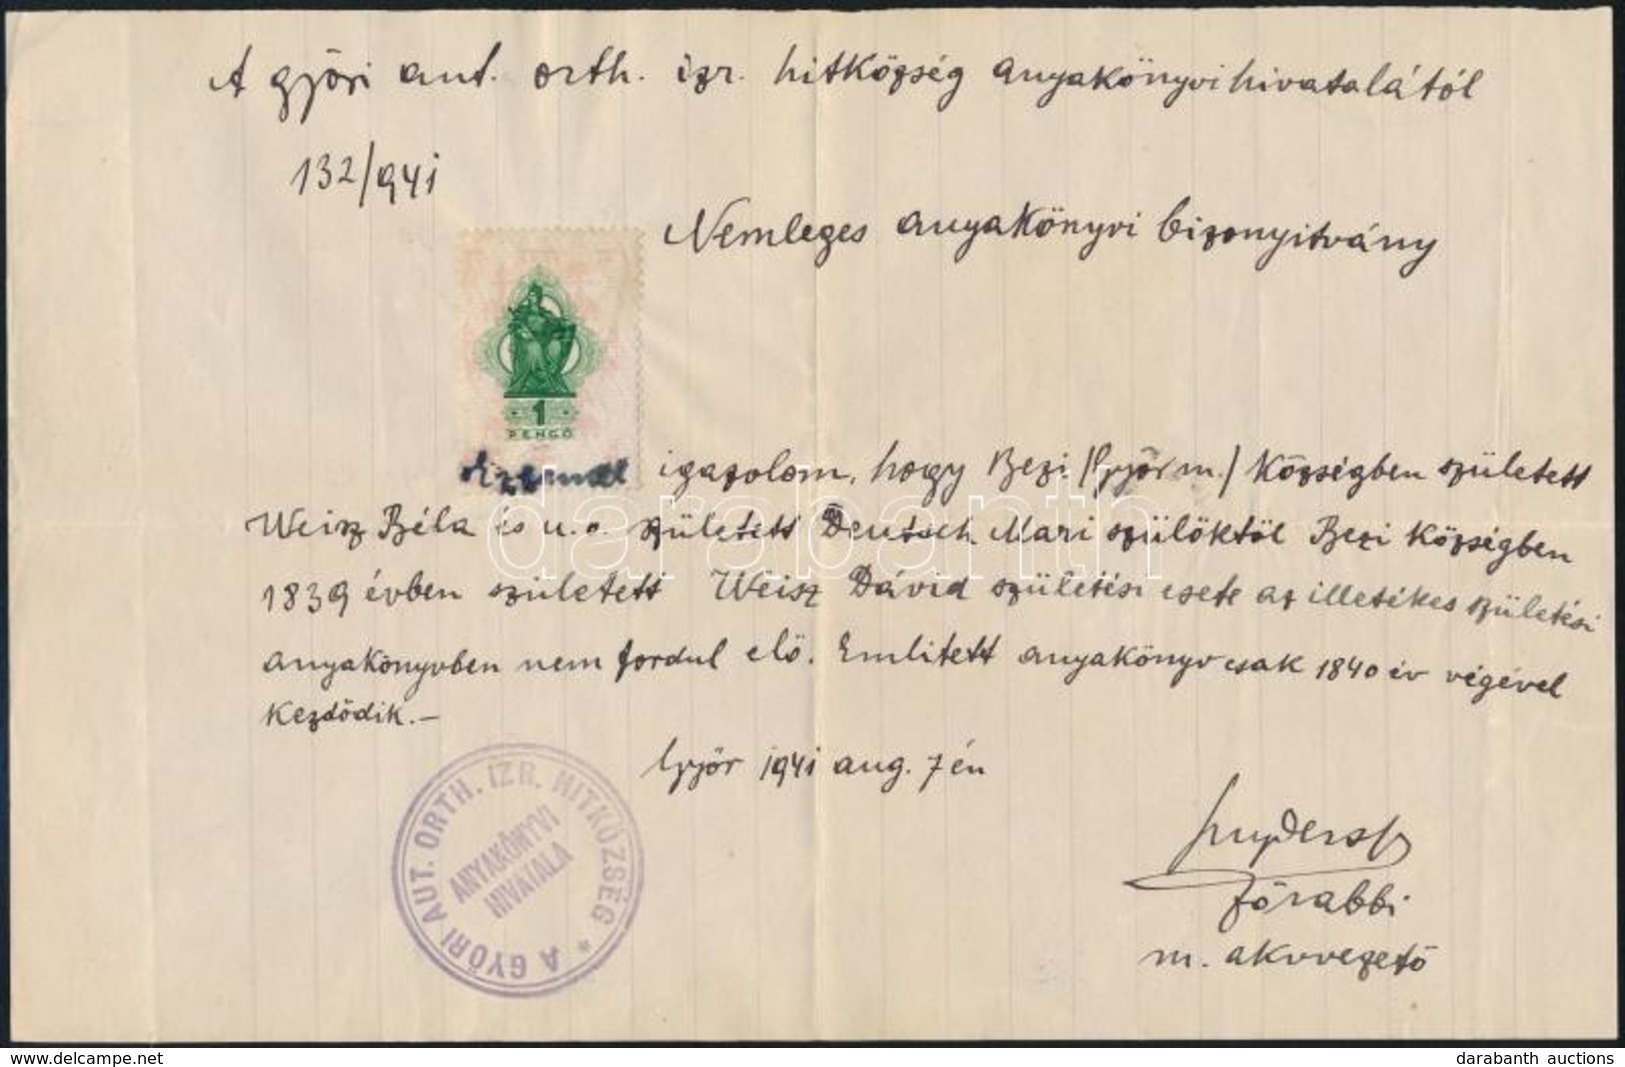 A győri aut. orth. izr. hitközség anyakönyvi hivatalától
132/941
Nemleges anyakönyvi bizonyitvány
1
PENGŐ
igazolom, hogy Bezi /Győr m./ községben született
Weisz Béla és u. o. született Deutsch Mari szülöktöl Bezi községben
1839 évben született Weisz Dávid születési esete az illetékes születési
anyakönyvben nem fordul elö. Emlitett anyakönyv csak 1840 év végével
kezdödik.—
Györ 1941 aug. 7 én
főrabbi
m. akvvezető
* A GYŐRI AUT. ORTH. IZR. HITKÖZSÉG
ANYAKÖNYVI
HIVATALA
darabanth
www.delcampe.net
darabanth auctions